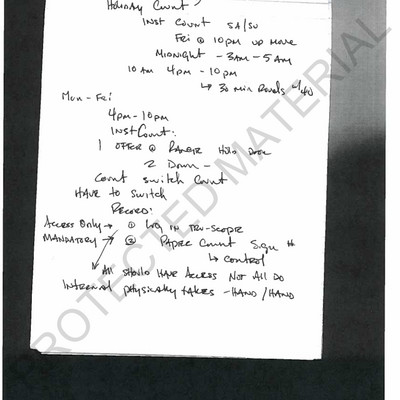 Holiday Count
Inst Count SA/SU
Fri @ 10pm no move
Midnight - 3AM - 5AM
10 AM 4pm - 10pm
↳ 30 min Rounds
Mon - Fri
4pm - 10pm
Inst Count:
1 OFFCR @ Door
2 Down -
Count switch Count
HAVE to Switch
RECORD:
Access Only → ① Log in TRU-SCOPE
MANDATORY → ② PAPER Count #
↳ Control
All Should HAVE Access Not All Do
Internal physically takes - HAND/HAND
PROTECTED MATERIAL